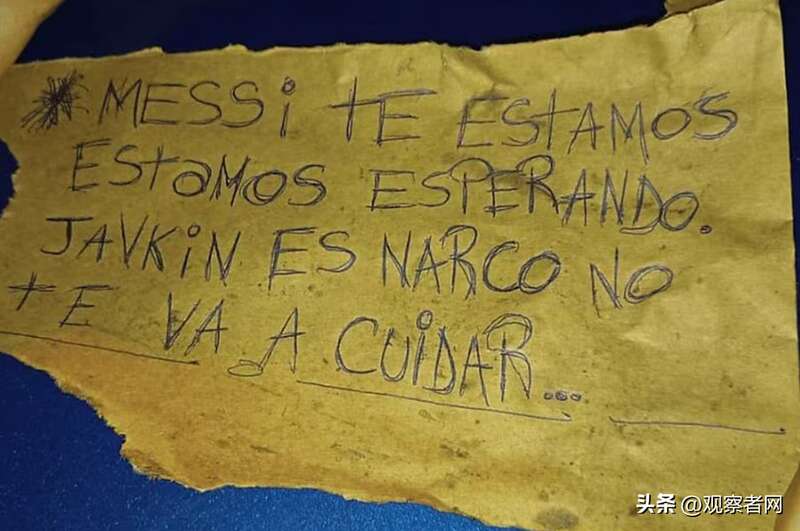 * MESSi tE EStAMOS
EStaMOS ESPERANDO.
JAVKiN ES NARCO NO
tE VA A CUiDAR...
头条 @观察者网